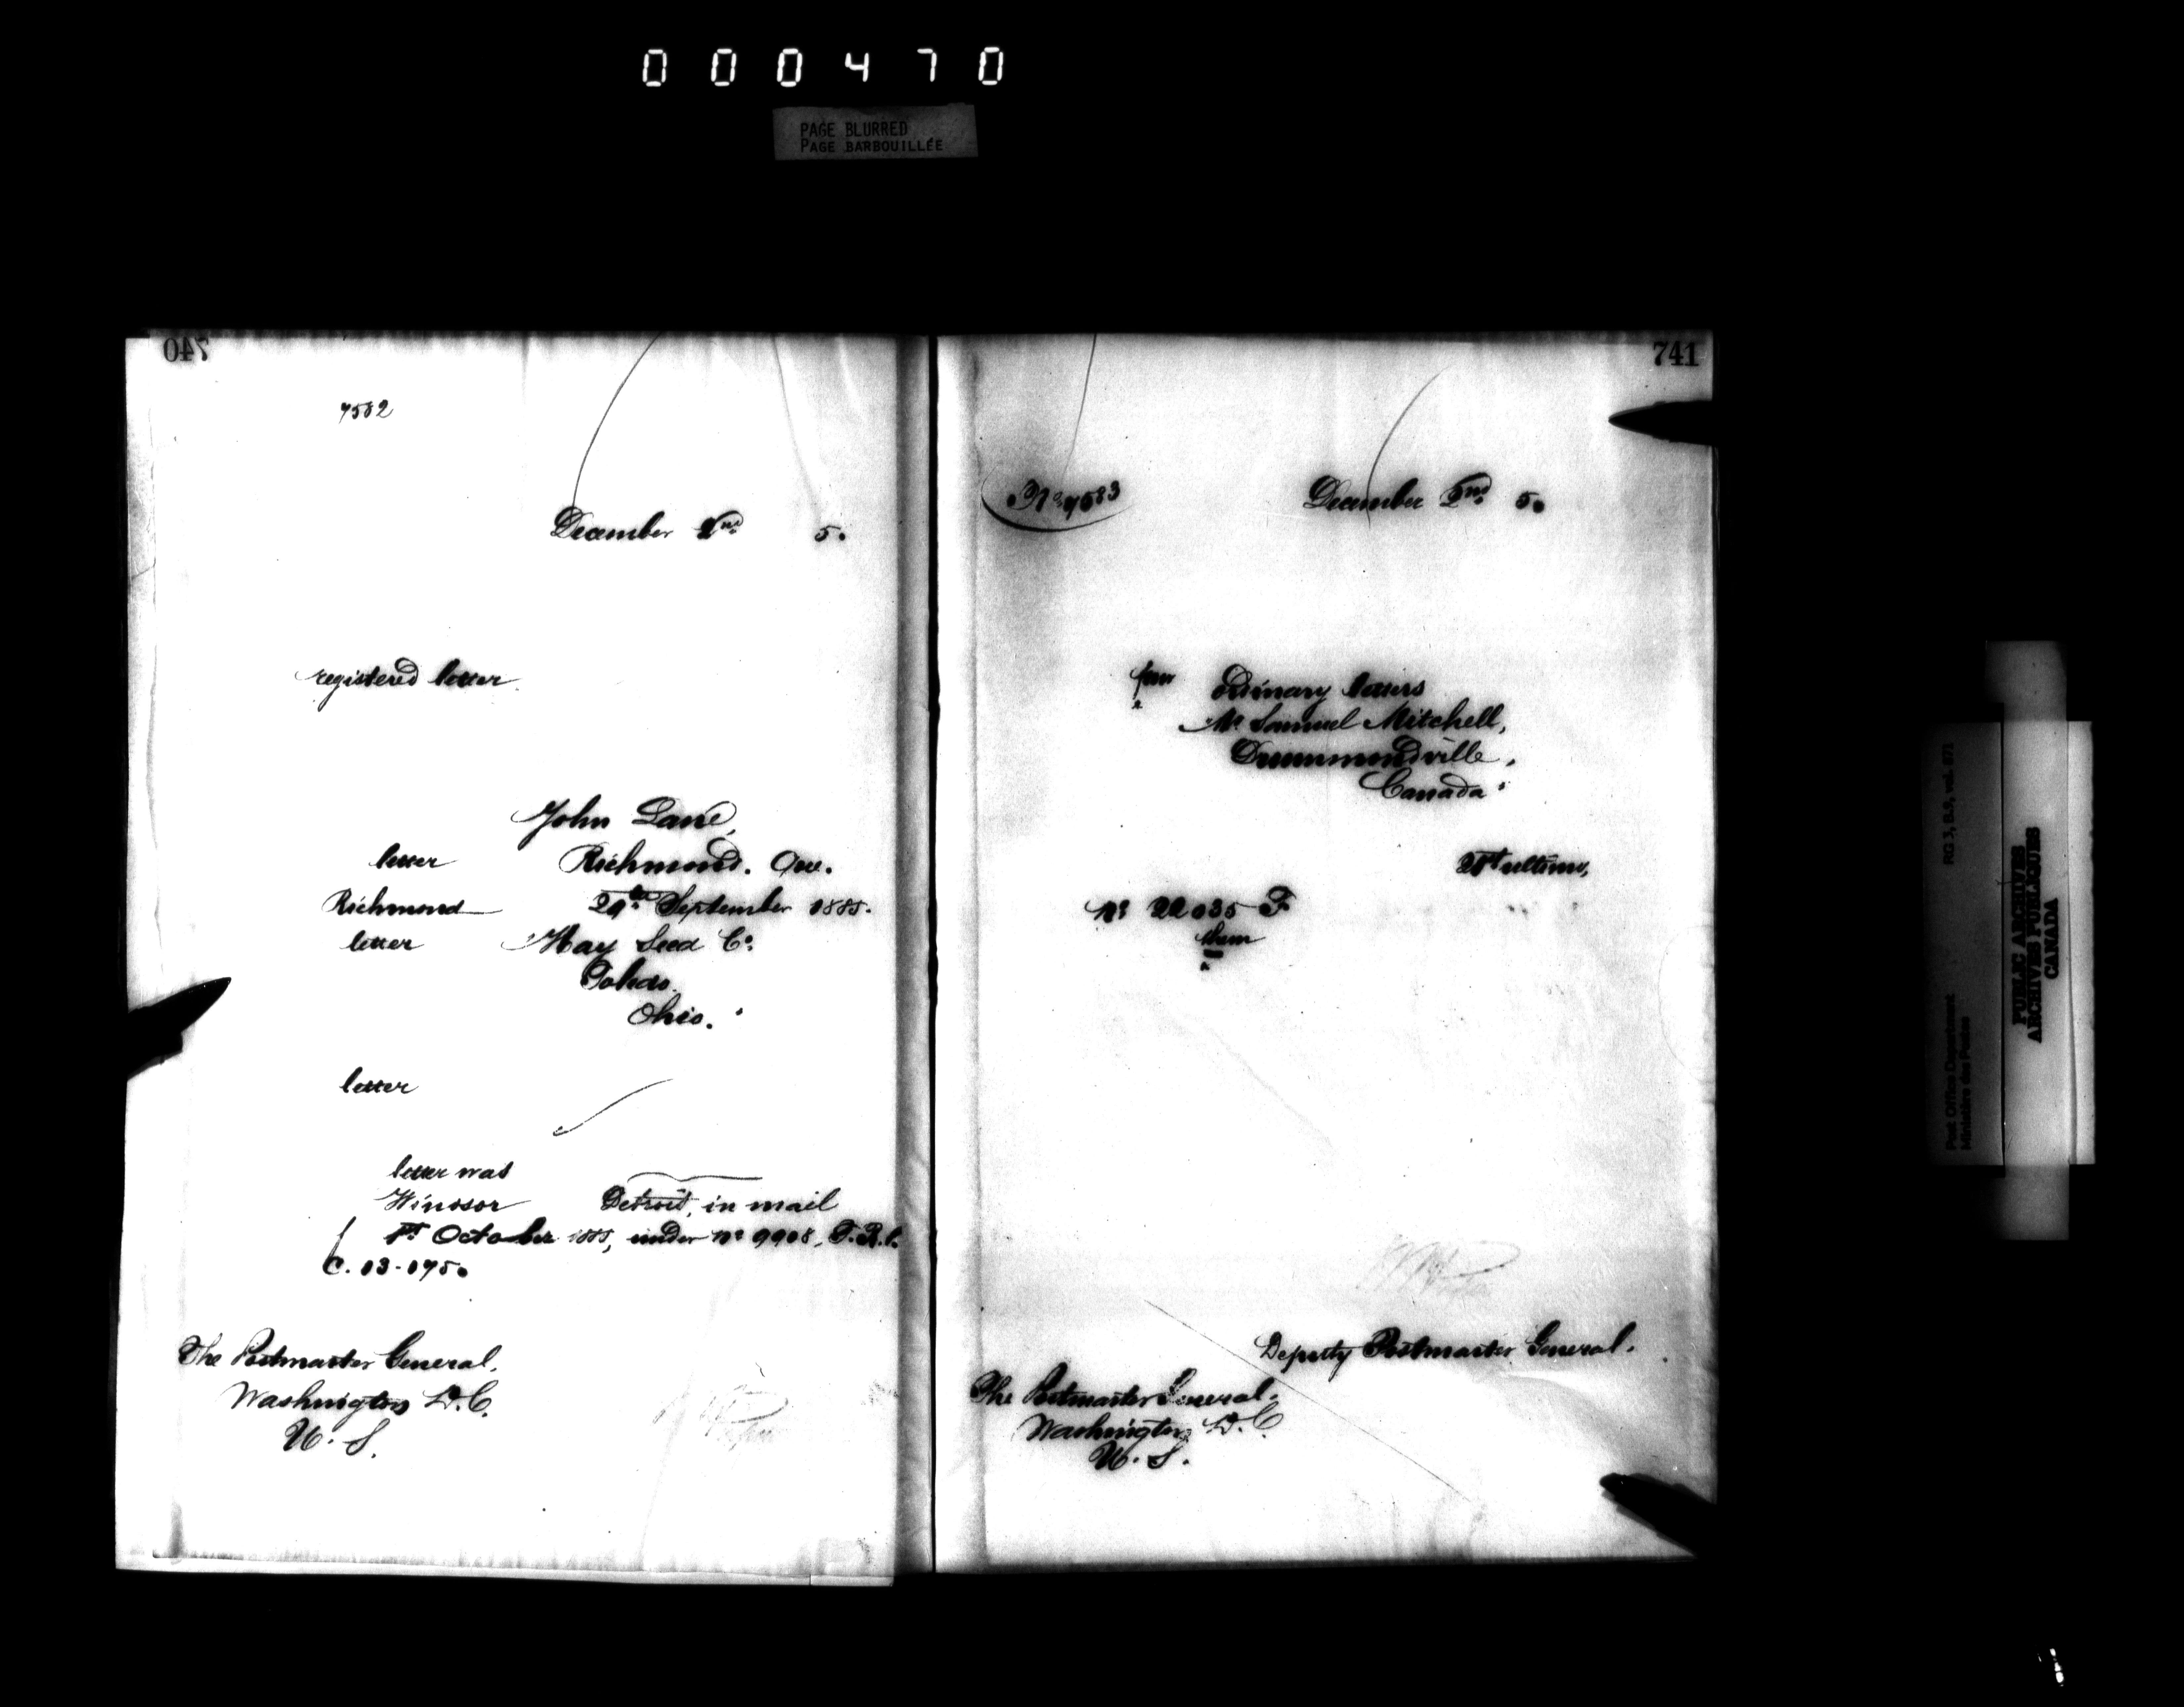 000470
PAGE BLURRED
PAGE BARBOUILLÉE
740
7582
December 2nd 5.
registered letter
John Lane,
letter Richmond. Que.
Richmond 29th September 1885.
letter May Seed Co.
Toledo.
Ohio.
letter
letter was
Windsor Detroit, in mail
1st October 1885, under No 9908, T.R.C.
C. 13-175.
The Postmaster General,
Washington D.C.
U. S.
741
No 7583 December 2nd 5.
ordinary letters
Mr Samuel Mitchell,
Drummondville,
Canada
ultimo,
No 22035 F
them
Deputy Postmaster General.
The Postmaster General,
Washington D.C
U. S.
Post Office Department
Ministère des Postes
RG 3, B.9, vol. 871
PUBLIC ARCHIVES
ARCHIVES PUBLIQUES
CANADA